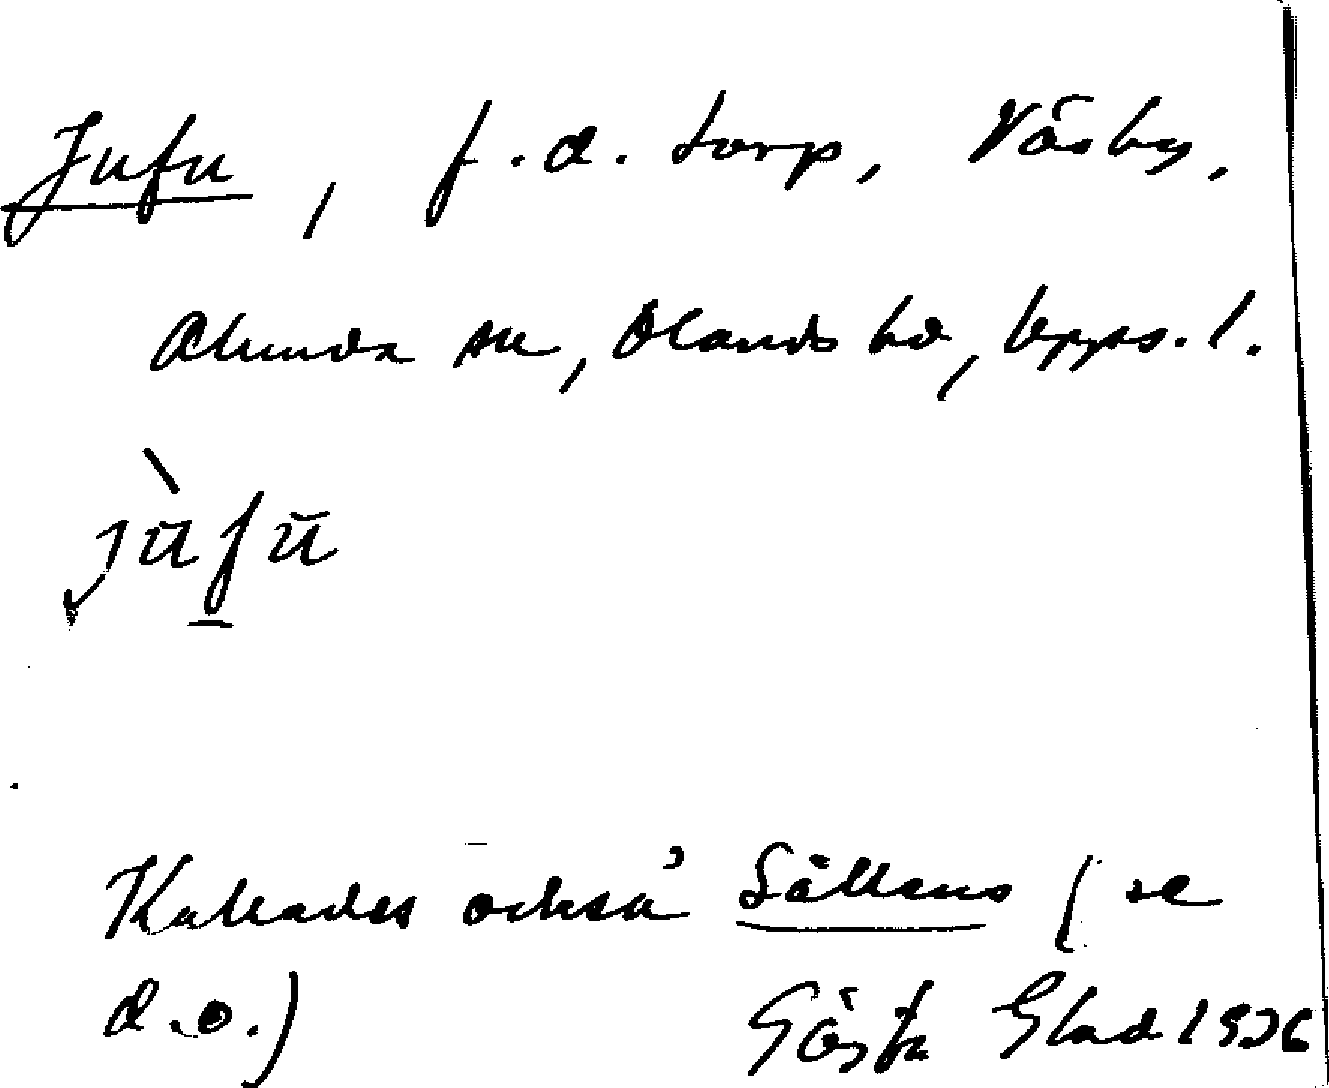 Jufu, f.d. torp, Väsby,
Alunda sn, Olands hd, Upps. l.
jùfu
Kallades också Sällens (se
d.o.) Gösta Glad 1936